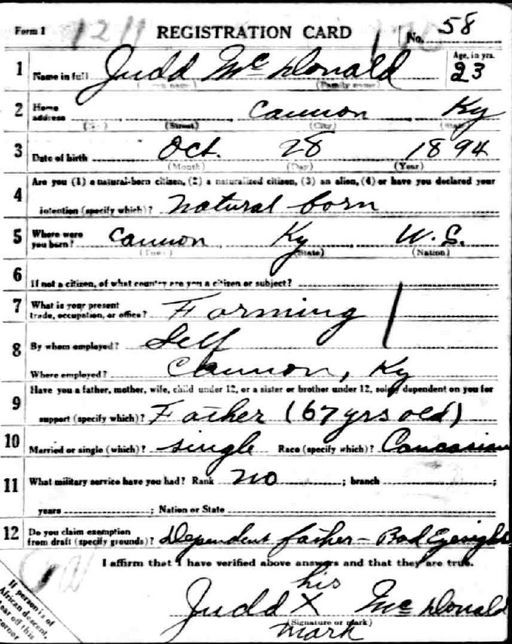 Form 1 REGISTRATION CARD No. 58
1 Name in full Judd McDonald Age, in yrs. 23
(Family name)
2 Home address Cannon Ky
(No.) (Street) (City) (State)
3 Date of birth Oct. 28 1894
(Month) (Day) (Year)
4 Are you (1) a natural-born citizen, (2) a naturalized citizen, (3) an alien, (4) or have you declared your
intention (specify which)? Natural born
5 Where were you born? Cannon Ky U.S.
(Town) (State) (Nation)
6 If not a citizen, of what country are you a citizen or subject?
7 What is your present trade, occupation, or office? Farming
8 By whom employed? Self
Where employed? Cannon, Ky
9 Have you a father, mother, wife, child under 12, or a sister or brother under 12, solely dependent on you for
support (specify which)? Father (67 yrs old)
10 Married or single (which)? single Race (specify which)? Caucasian
11 What military service have you had? Rank no ; branch ;
years ; Nation or State
12 Do you claim exemption from draft (specify grounds)? Dependent father - Bad Eyesight
I affirm that I have verified above answers and that they are true.
his
Judd X McDonald
(Signature or mark)
mark
If person is of
African descent,
tear off this
corner